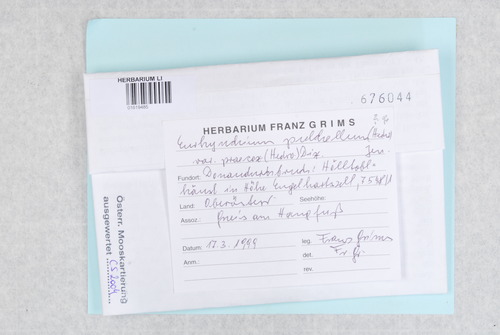 HERBARIUM LI
01919480
676044
HERBARIUM FRANZ GRIMS
Eurhynchium pulchellum (Hedw)
var. praecox (Hedw) Dix. Jen.
Fundort: Donaudurchbruch: Hölltobl
in Höhe Engelhartszell, 7548/1
Land: Oberösterr Seehöhe:
Assoz.: Gneis am Hangfuß
Datum: 17.3.1999 leg. Franz Grims
Anm.: det. Fr. Gri
rev.
Österr. Mooskartierung
ausgewertet CS 2004